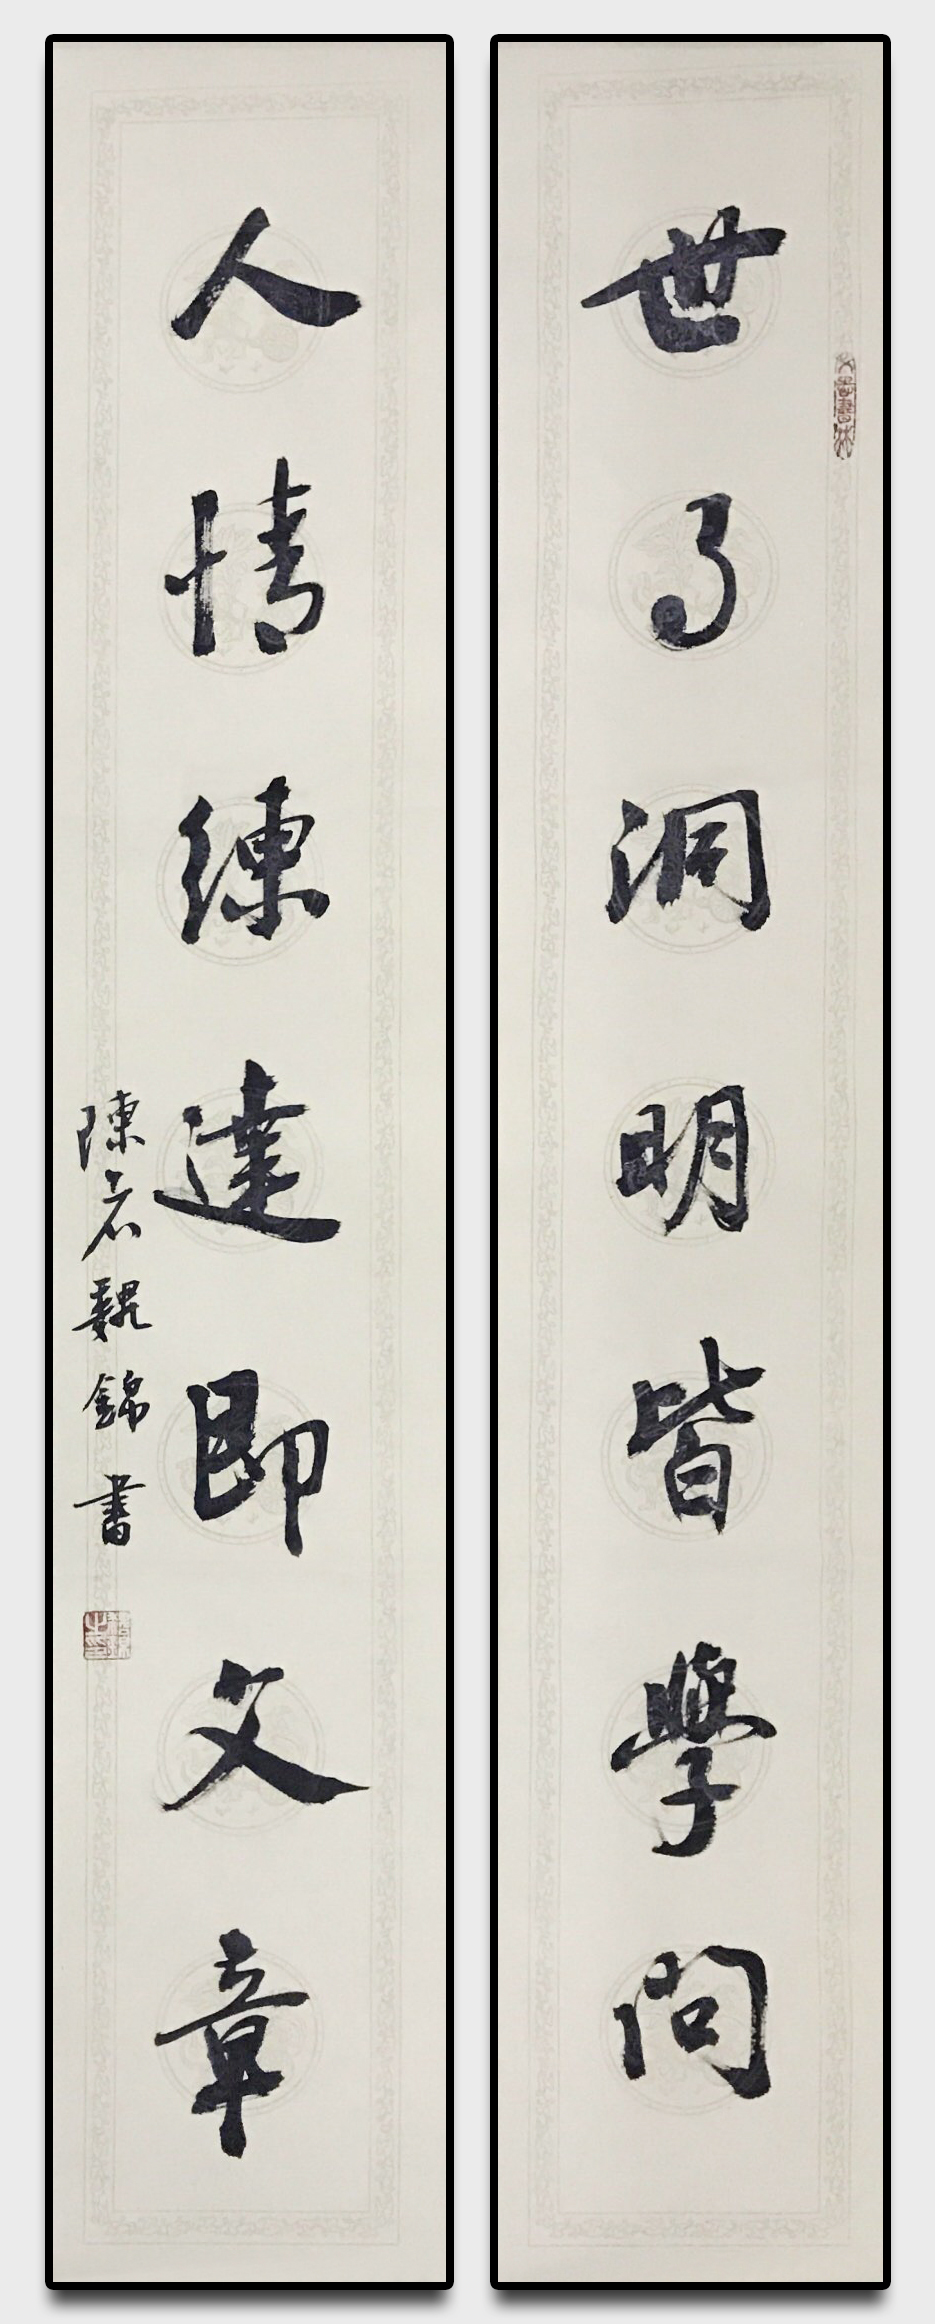 世事洞明皆學問
人情練達即文章
陳若魏錦書